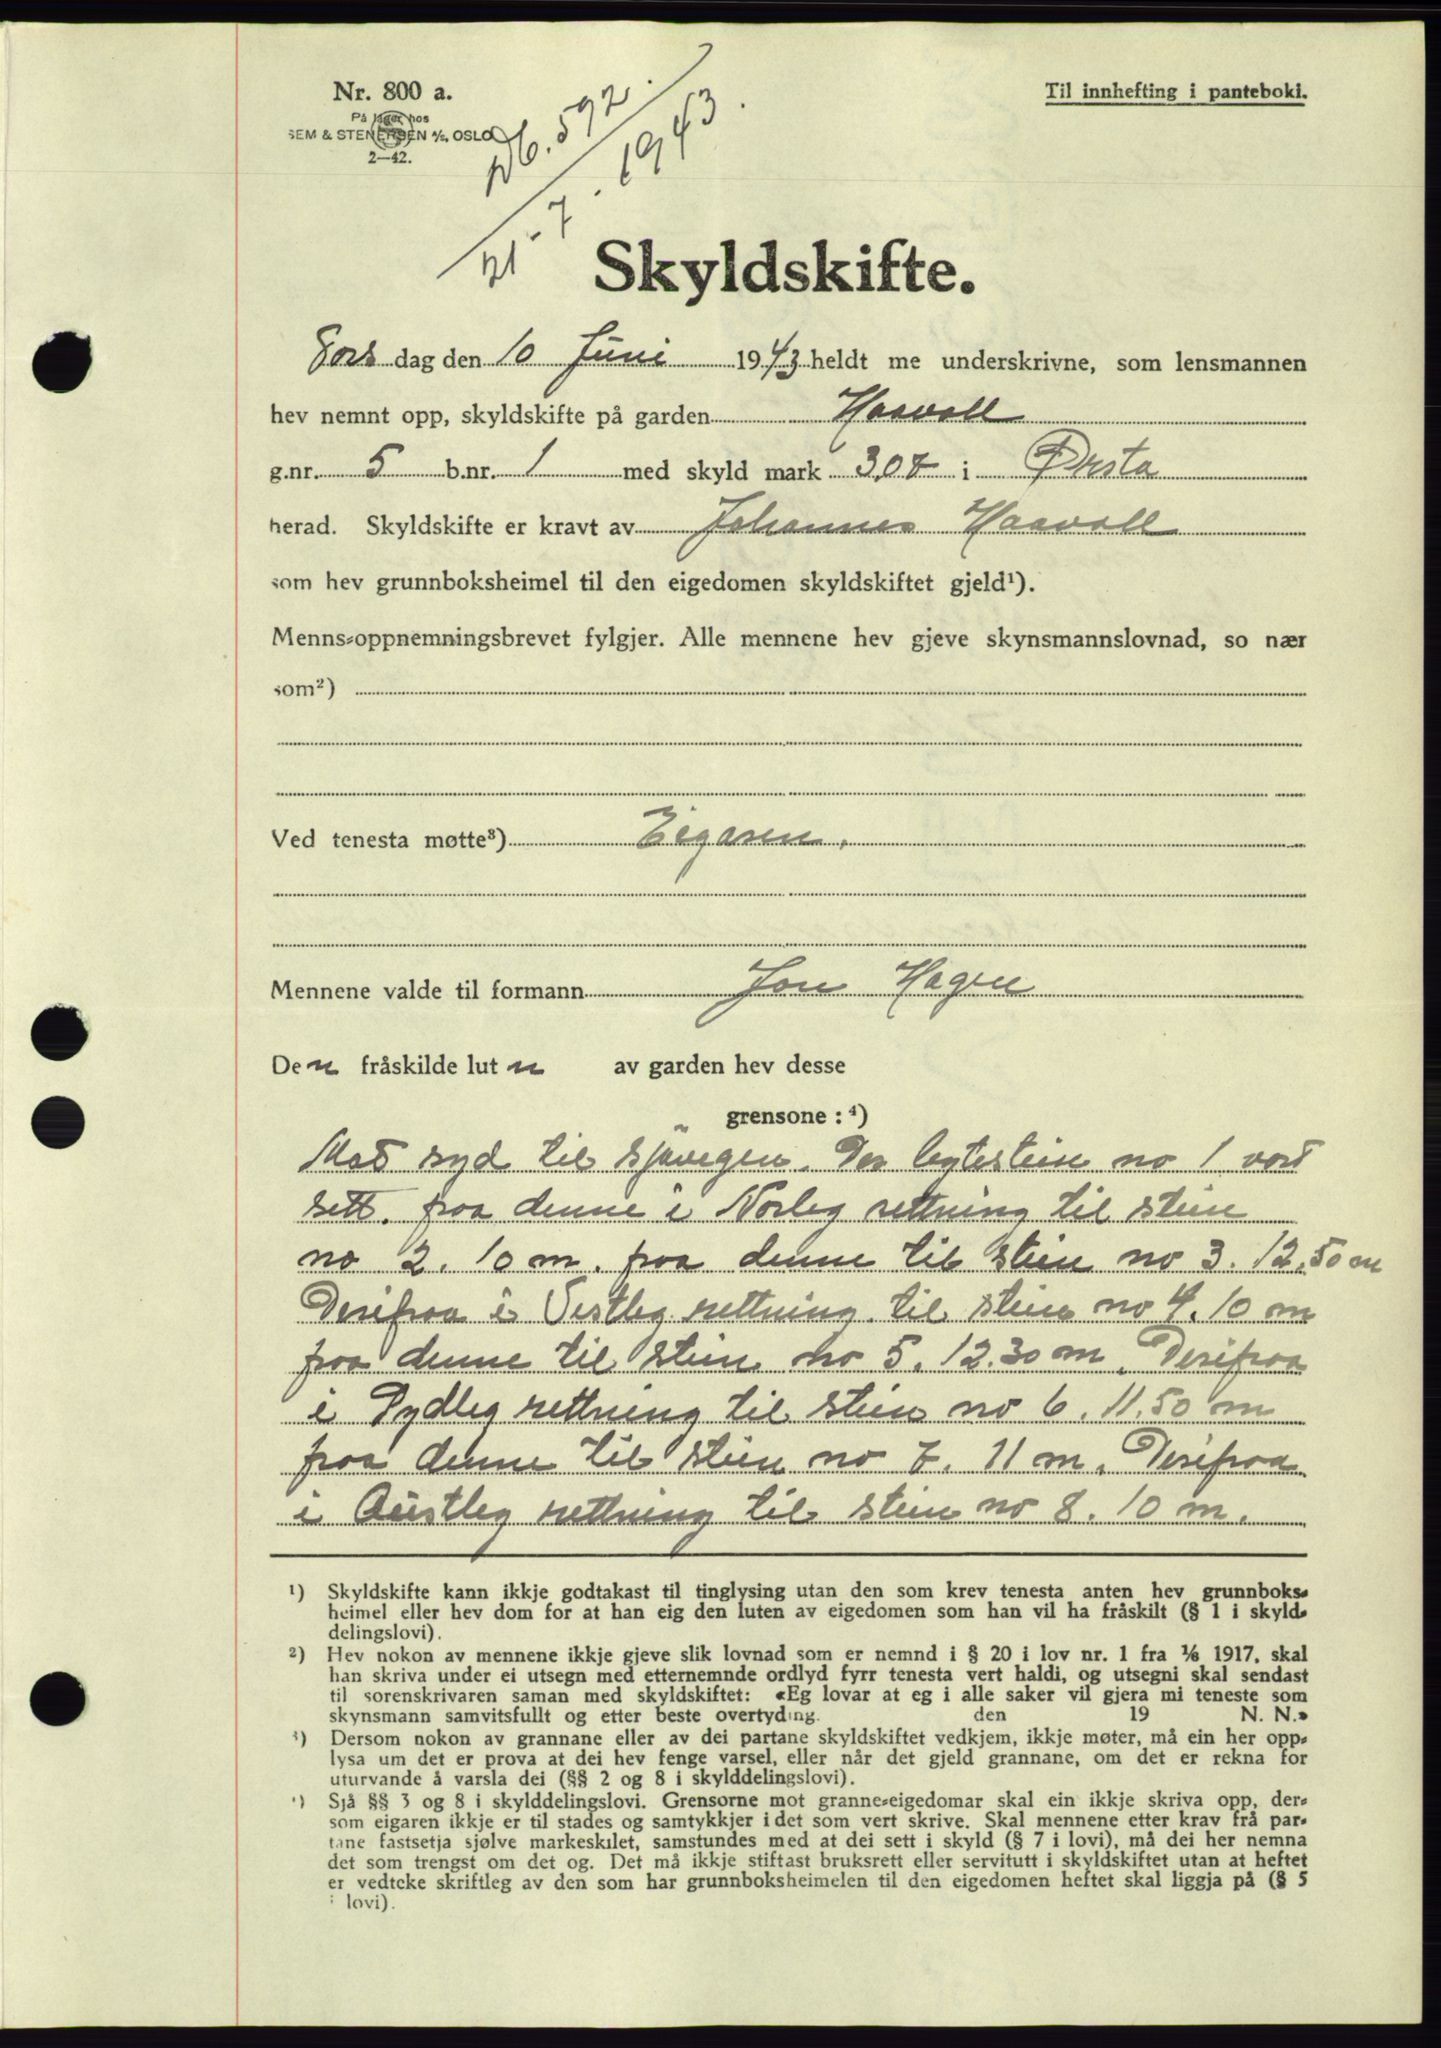 Nr. 800 a.
På lager hos
SEM & STENERSEN A/S, OSLO
2—42.
Til innhefting i panteboki.
Db. 592.
21-7-1943.
Skyldskifte.
Tors dag den 10 Juni 1943 heldt me underskrivne, som lensmannen
hev nemnt opp, skyldskifte på garden Haavoll
g.nr. 5 b.nr. 1 med skyld mark 3,07 i Ørsta
herad. Skyldskifte er kravt av Johannes Haavoll
som hev grunnboksheimel til den eigedomen skyldskiftet gjeld¹).
Menns-oppnemningsbrevet fylgjer. Alle mennene hev gjeve skynsmannslovnad, so nær
som²)
Ved tenesta møtte³) Eigaren.
Mennene valde til formann Jon Hagen
Den fråskilde luten av garden hev desse
grensone: ⁴)
Mot syd til sjøvegen. Der bytestein no 1 vort
sett. fraa denne i Norleg rettning til stein
no 2. 10 m. fraa denne til stein no 3. 12.50 m
Derifraa i Vestleg rettning til stein no 4. 10 m
fraa denne til stein no 5. 12.30 m. Derifraa
i Sydleg rettning til stein no 6. 11.50 m
fraa denne til stein no 7. 11 m. Derifraa
i Austleg rettning til stein no 8. 10 m.
¹) Skyldskifte kann ikkje godtakast til tinglysing utan den som krev tenesta anten hev grunnboks-
heimel eller hev dom for at han eig den luten av eigedomen som han vil ha fråskilt (§ 1 i skyld-
delingslovi).
²) Hev nokon av mennene ikkje gjeve slik lovnad som er nemnd i § 20 i lov nr. 1 fra 1/6 1917, skal
han skriva under ei utsegn med etternemnde ordlyd fyrr tenesta vert haldi, og utsegni skal sendast
til sorenskrivaren saman med skyldskiftet: «Eg lovar at eg i alle saker vil gjera mi teneste som
skynsmann samvitsfullt og etter beste overtyding. den 19 N. N.»
³) Dersom nokon av grannane eller av dei partane skyldskiftet vedkjem, ikkje møter, må ein her opp-
lysa um det er prova at dei hev fenge varsel, eller når det gjeld grannane, om det er rekna for
uturvande å varsla dei (§§ 2 og 8 i skylddelingslovi).
⁴) Sjå §§ 3 og 8 i skylddelingslovi. Grensorne mot granne-eigedomar skal ein ikkje skriva opp, der-
som eigaren ikkje er til stades og samtykkjer i det som vert skrive. Skal mennene etter krav frå par-
tane fastsetja sjølve markeskilet, samstundes med at dei sett i skyld (§ 7 i lovi), må dei her nemna
det som trengst om det og. Det må ikkje stiftast bruksrett eller servitutt i skyldskiftet utan at heftet
er vedteke skriftleg av den som har grunnboksheimelen til den eigedomen heftet skal liggja på (§ 5
i lovi).